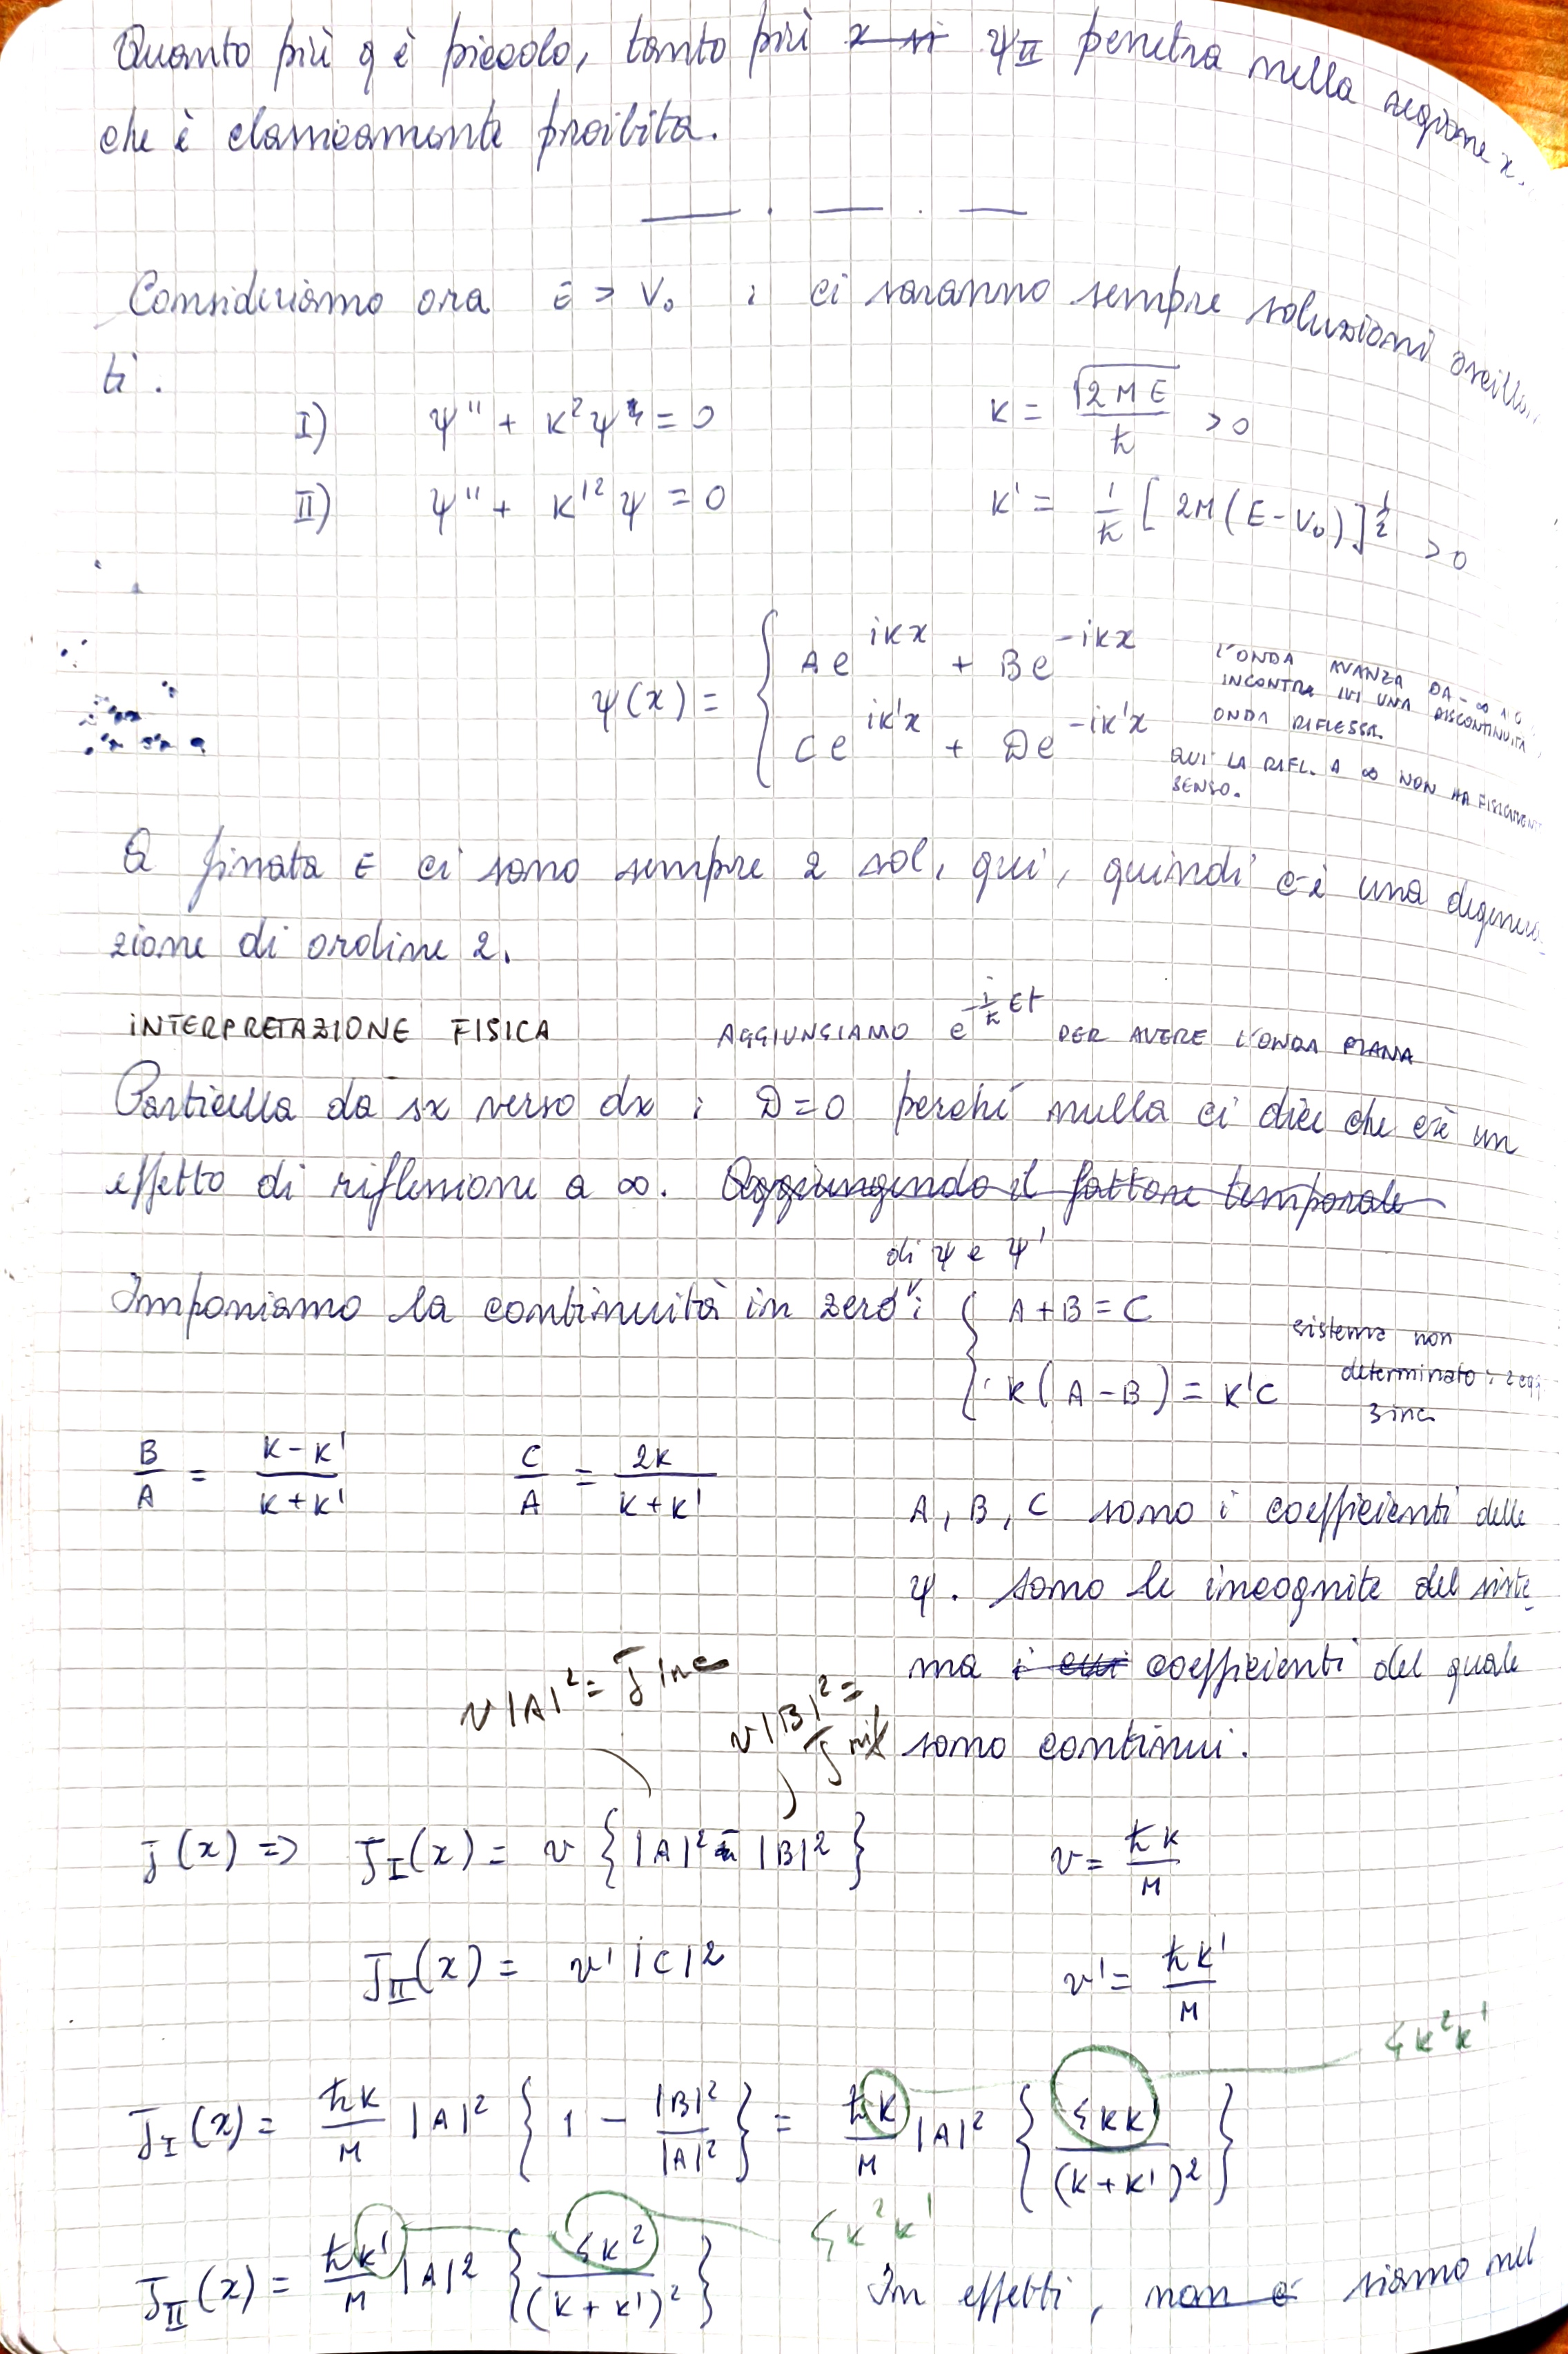 Quanto più q è piccolo, tanto più x si ψ_II penetra nella regione x
che è classicamente proibita.
Consideriamo ora E > V₀ : ci saranno sempre soluzioni oscillan
ti.
I) ψ'' + k²ψ = 0 k = √(2ME)/ħ > 0
II) ψ'' + k'²ψ = 0 k' = 1/ħ [2M(E-V₀)]^½ > 0
ψ(x) = { A e^{ikx} + B e^{-ikx}
C e^{ik'x} + D e^{-ik'x}
L'ONDA AVANZA DA -∞ A 0
INCONTRA IVI UNA DISCONTINUITÀ
ONDA RIFLESSA.
QUI LA RIFL. A ∞ NON HA FISICAMENTE
SENSO.
A fissata E ci sono sempre 2 sol, qui, quindi c'è una degenera-
zione di ordine 2.
INTERPRETAZIONE FISICA AGGIUNGIAMO e^{-i/ħ Et} PER AVERE L'ONDA PIANA
Particella da sx verso dx : D=0 perché nulla ci dice che c'è un
effetto di riflessione a ∞. Aggiungendo il fattore temporale
di ψ e ψ'
Imponiamo la continuità in zero : { A+B = C
k(A-B) = k'C
sistema non
determinato: 2 eq
3 inc
B/A = (k-k')/(k+k') C/A = 2k/(k+k')
A, B, C sono i coefficienti delle
ψ. Sono le incognite del siste-
ma i cui coefficienti del quale
sono continui.
v|A|² = J inc
v|B|² =
J rif
J(x) => J_I(x) = v { |A|² - |B|² } v = ħk/M
J_II(x) = v'|C|² v' = ħk'/M
4k²k'
J_I(x) = ħk/M |A|² { 1 - |B|²/|A|² } = ħk/M |A|² { 4kk'/(k+k')² }
J_II(x) = ħk'/M |A|² { 4k²/(k+k')² } 4k²k'
In effetti, non è siamo nel